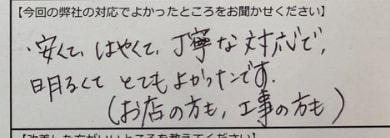 【今回の弊社の対応でよかったところをお聞かせください】
・安くて、はやくて、丁寧な対応で、
明るくて とてもよかったです。
(お店の方も、工事の方も)